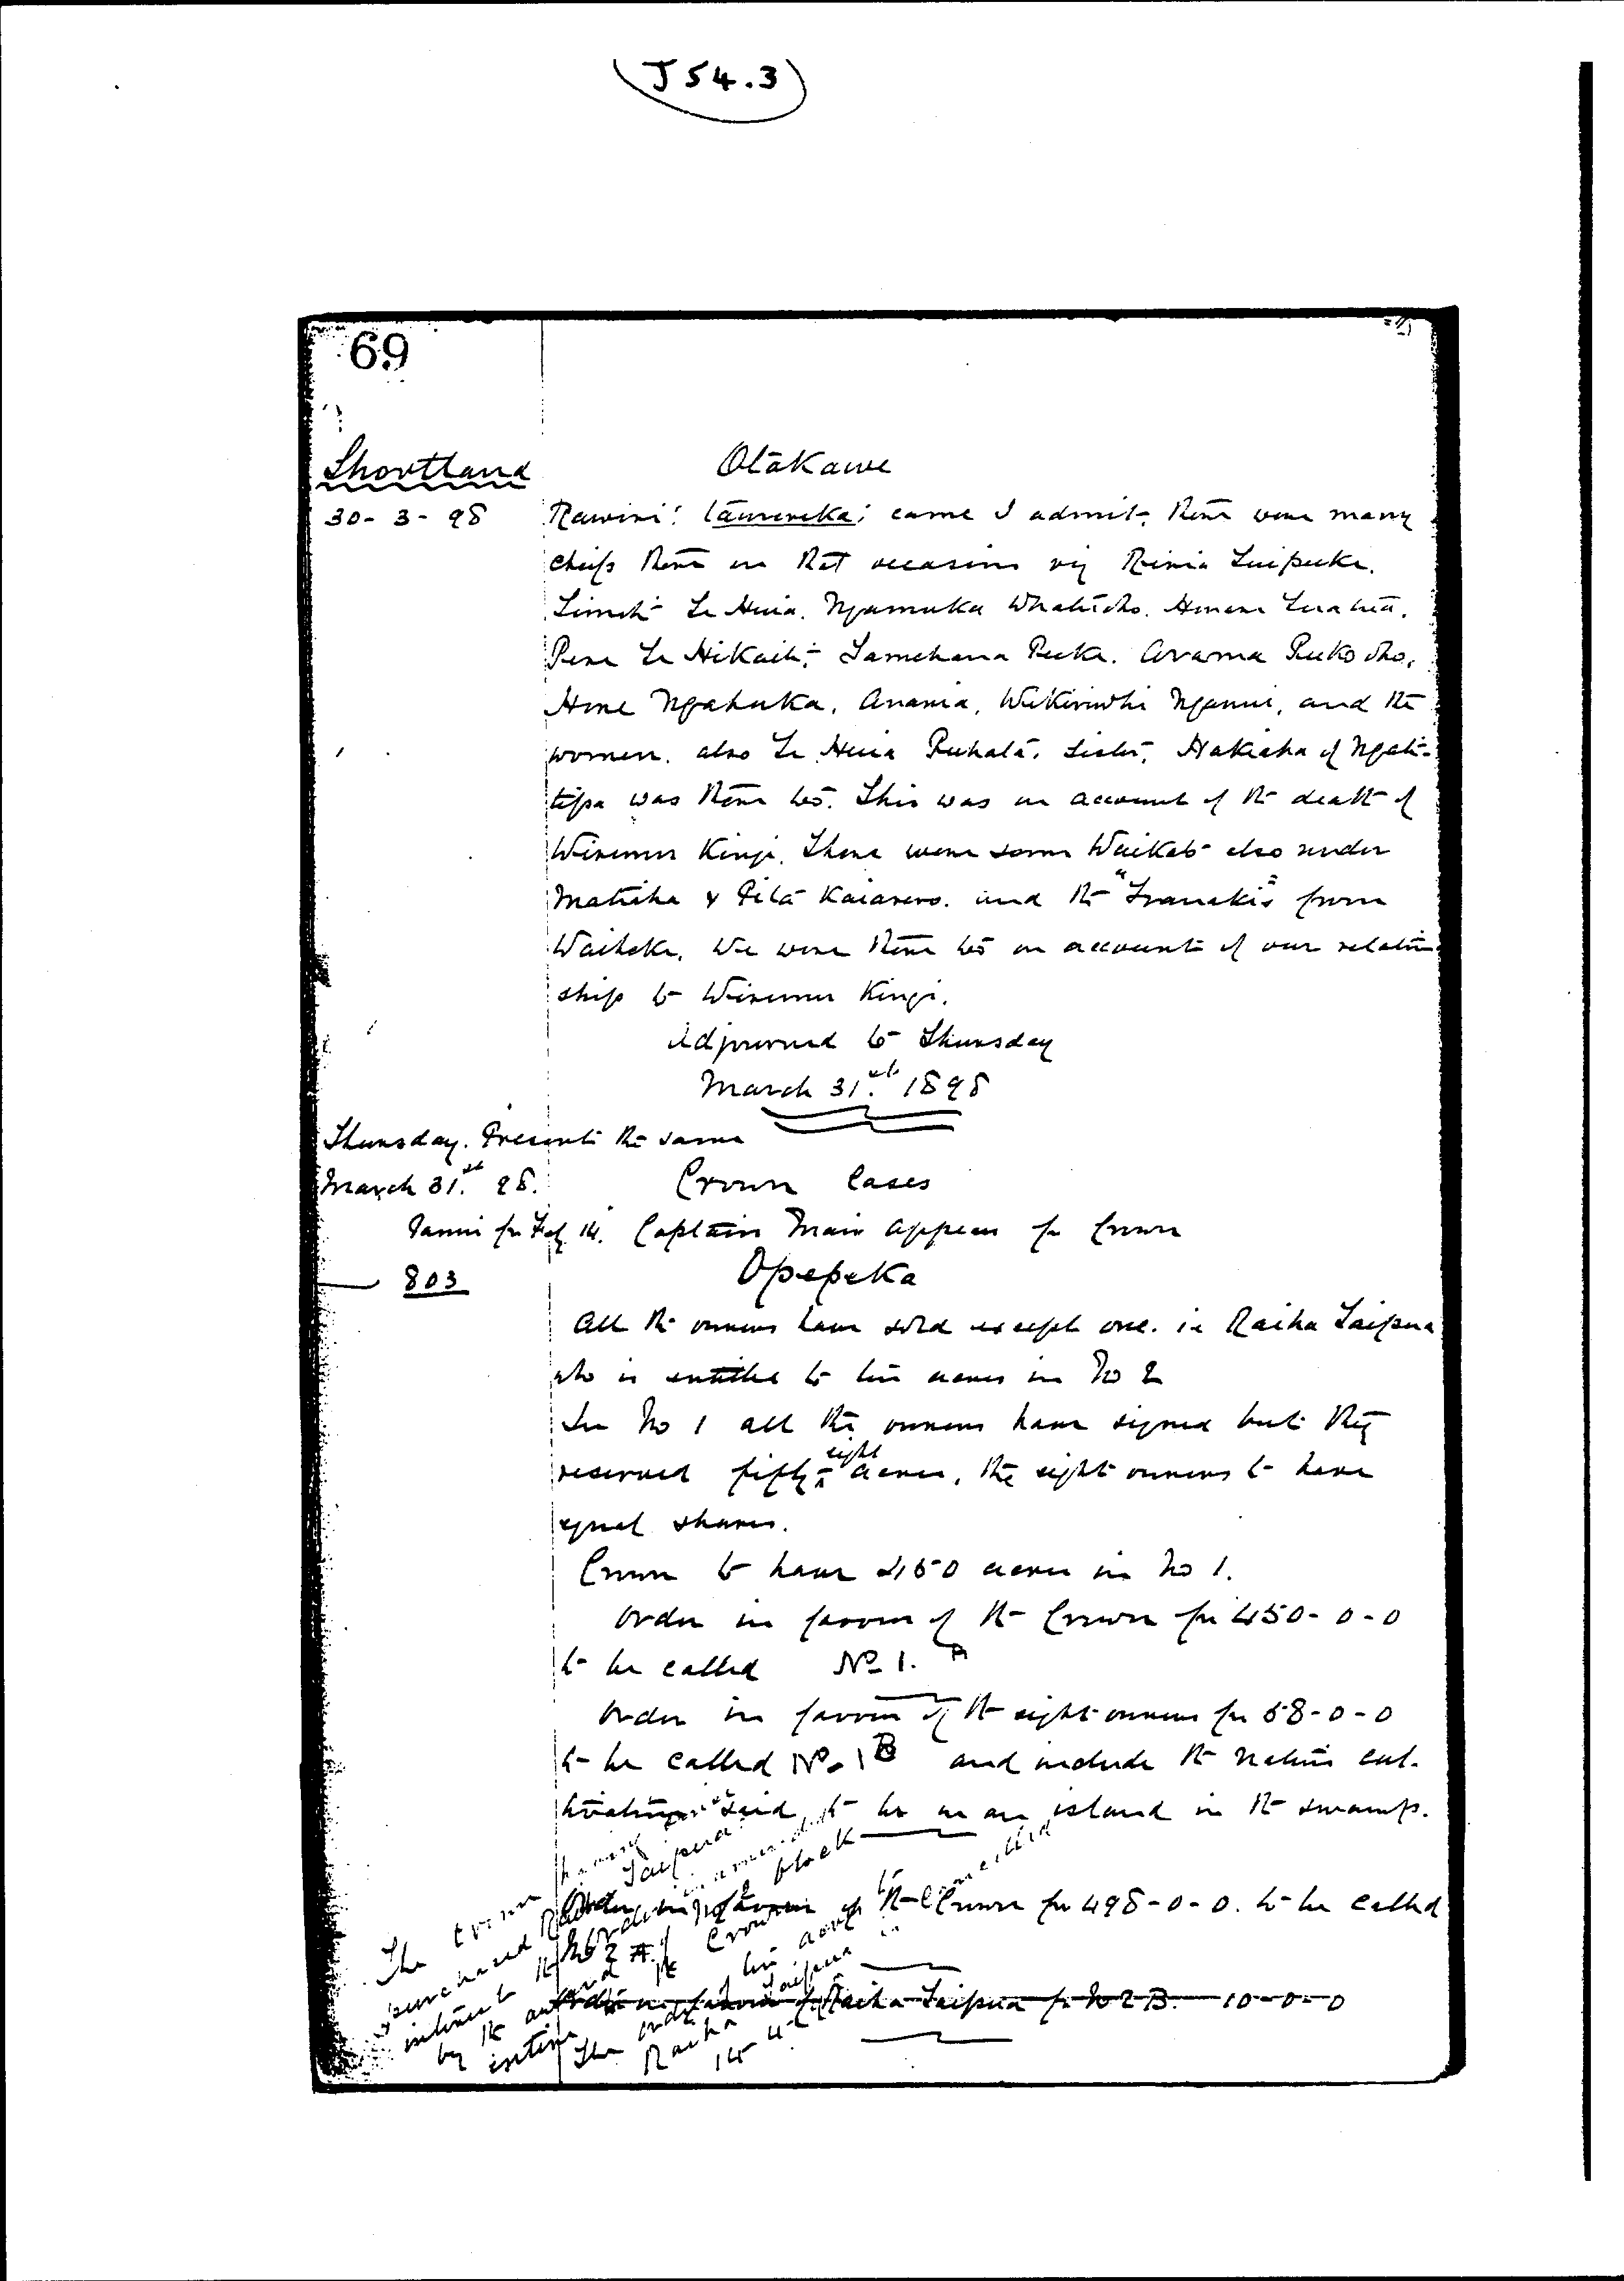 J54.3
69
Shortland
Otakawe
30-3-98
Rawiri: taurereka; came I admit, there were many
chiefs there on that occasion viz Rinia Taipuke.
Te Huia. Ngamuka
Pene Te Hikaiti, Tamehana Puke. Arama
Hone Ngahuka, Anania, Ngamui, and the
women. also Te Huia sister, Hakiaha of Ngati-
tipa was there too. This was on account of the death of
Wiremu Kingi. There were some Waikato also under
& Pita and the "Taranakis" from
Waiheke. We were there too on account of our relation
ship to Wiremu Kingi.
Adjourned to Thursday
March 31st. 1898
Thursday. Present the same
March 31st. 98.
Crown Cases
Panui for Feby 14. Captain Mair appears for Crown
803
Opepeka
All the owners have sold except one. ie Raiha Taipua
who is entitled to ten acres in No 2
In No 1 all the owners have signed but they
reserved fifty eight acres, the eight owners to have
equal shares.
Crown to have 450 acres in No 1.
Order in favour of the Crown for 450-0-0
to be called No 1. A
Order in favour of the eight owners for 58-0-0
to be called No. 1 B and include the native cul-
tivations said to be on an island in the swamp.
Order in favour of the Crown for 498-0-0. to be called
No 2 A.
Order in favour of Raiha Taipua for No 2 B. 10-0-0
The Crown having
purchased Raiha Taipua
interest the order is amended
by the award to the Crown of
entire No 2 block
The order for ten acres to
Raiha Taipua is cancelled